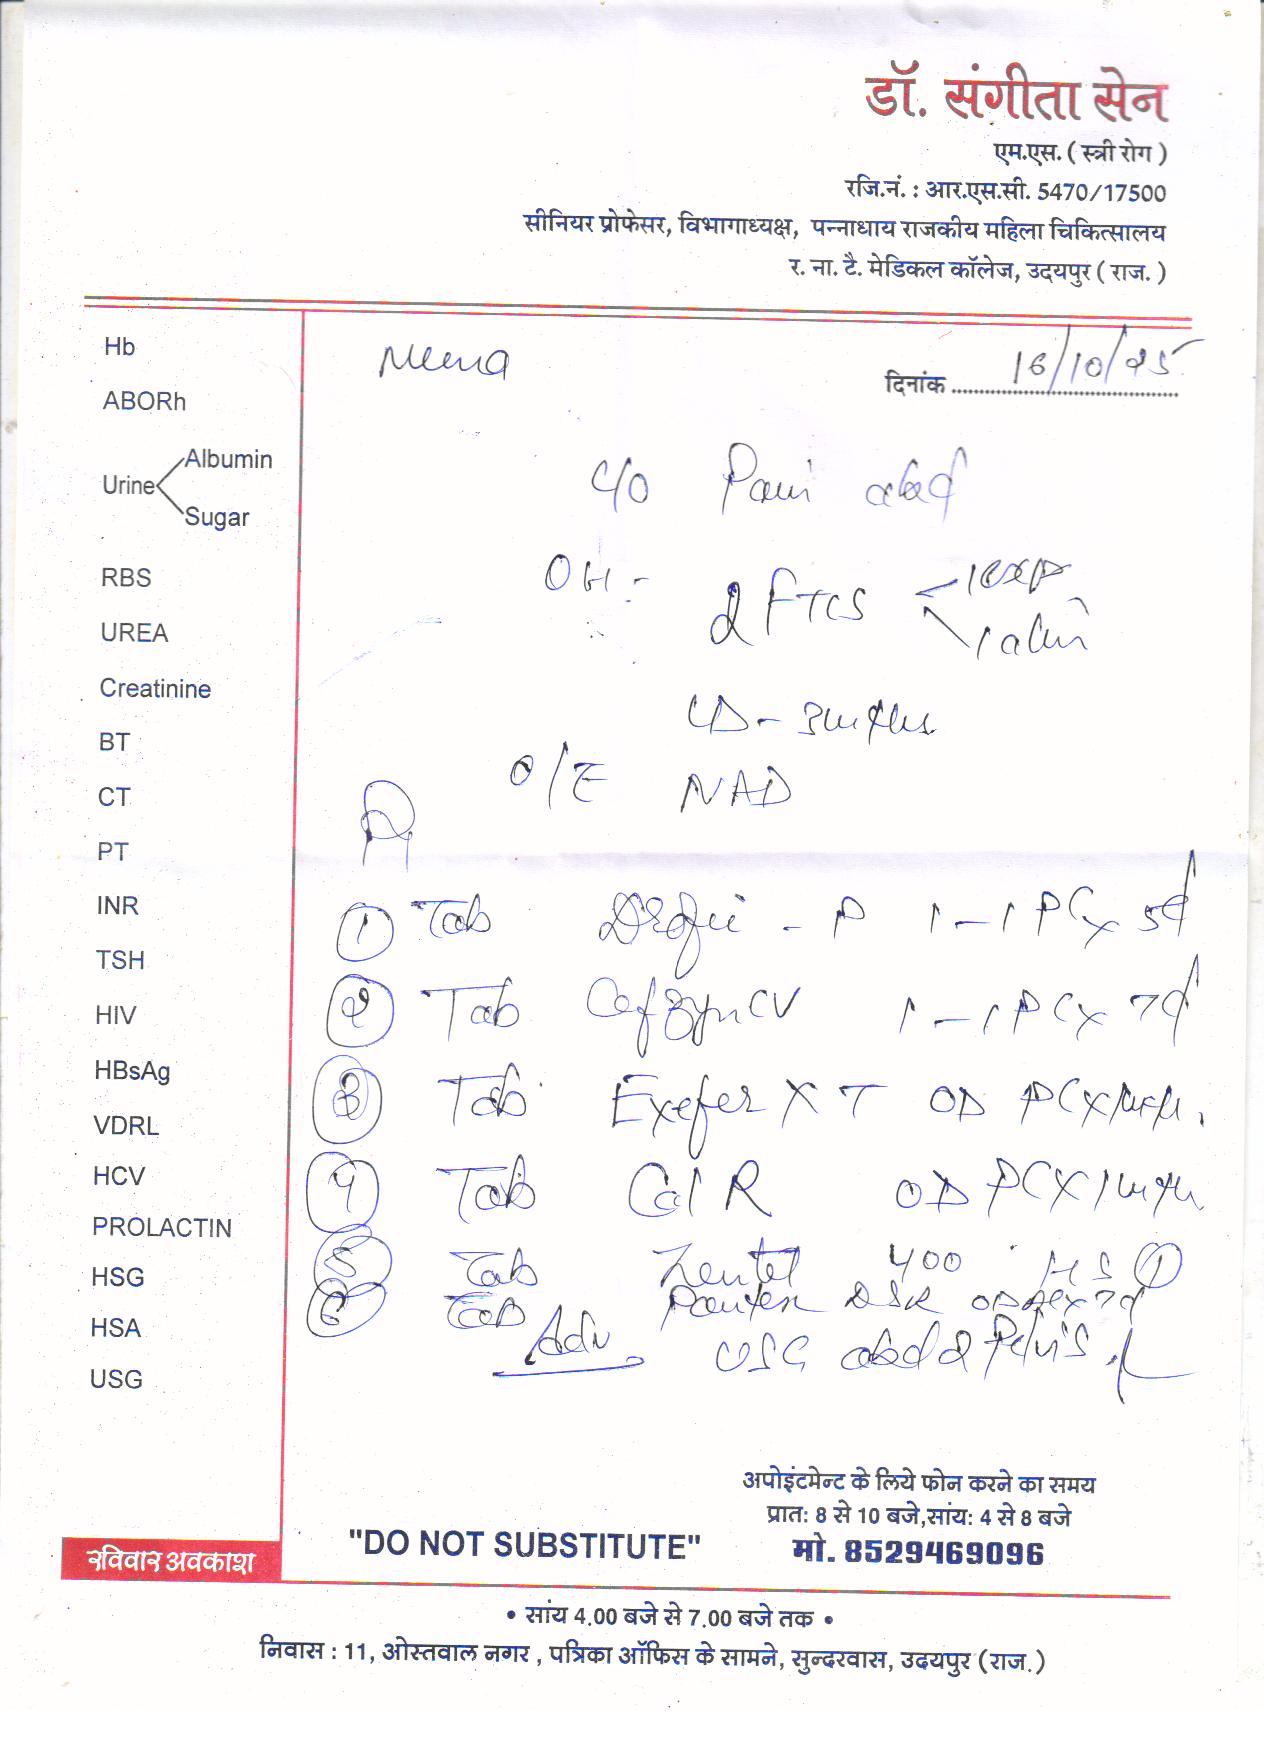 डॉ. संगीता सेन
एम.एस. ( स्त्री रोग )
रजि.नं. : आर.एस.सी. 5470/17500
सीनियर प्रोफेसर, विभागाध्यक्ष, पन्नाधाय राजकीय महिला चिकित्सालय
र. ना. टै. मेडिकल कॉलेज, उदयपुर ( राज. )
Meena
दिनांक 16/10/25
Hb
ABORh
Urine
Albumin
Sugar
RBS
UREA
Creatinine
BT
CT
PT
INR
TSH
HIV
HBsAg
VDRL
HCV
PROLACTIN
HSG
HSA
USG
C/O Pain abd
OH :- 2 FTCS
1 exp
LD - 3 months
O/E NAD
① Tab - P 1-1 PC x 5d
② Tab CV 1-1 PC x 7d
③ Tab XT OD PC x
④ Tab Cal R OD PC x 1 month
⑤ Tab Zentel 400 HS ①
⑥ Tab DSR OD x 7d
Adv USG abd & Pelvis
अपोइंटमेन्ट के लिये फोन करने का समय
प्रात: 8 से 10 बजे,सांय: 4 से 8 बजे
"DO NOT SUBSTITUTE"
मो. 8529469096
रविवार अवकाश
• सांय 4.00 बजे से 7.00 बजे तक •
निवास : 11, ओस्तवाल नगर , पत्रिका ऑफिस के सामने, सुन्दरवास, उदयपुर (राज.)